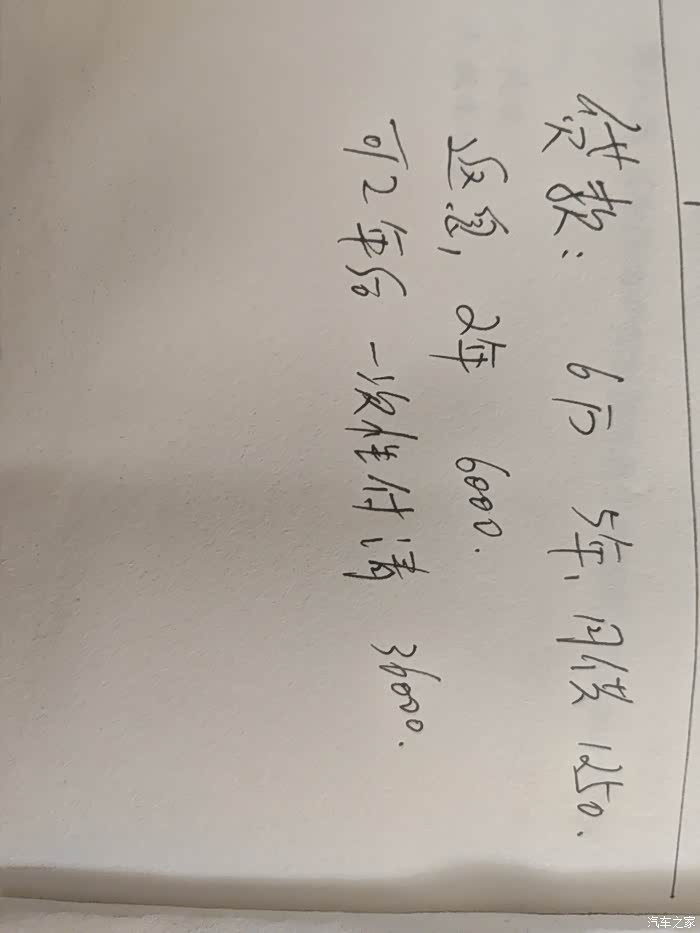 贷款: 6万 5年, 月供1250.
返息, 2年 6000.
可2年后一次性付清 36000.
汽车之家